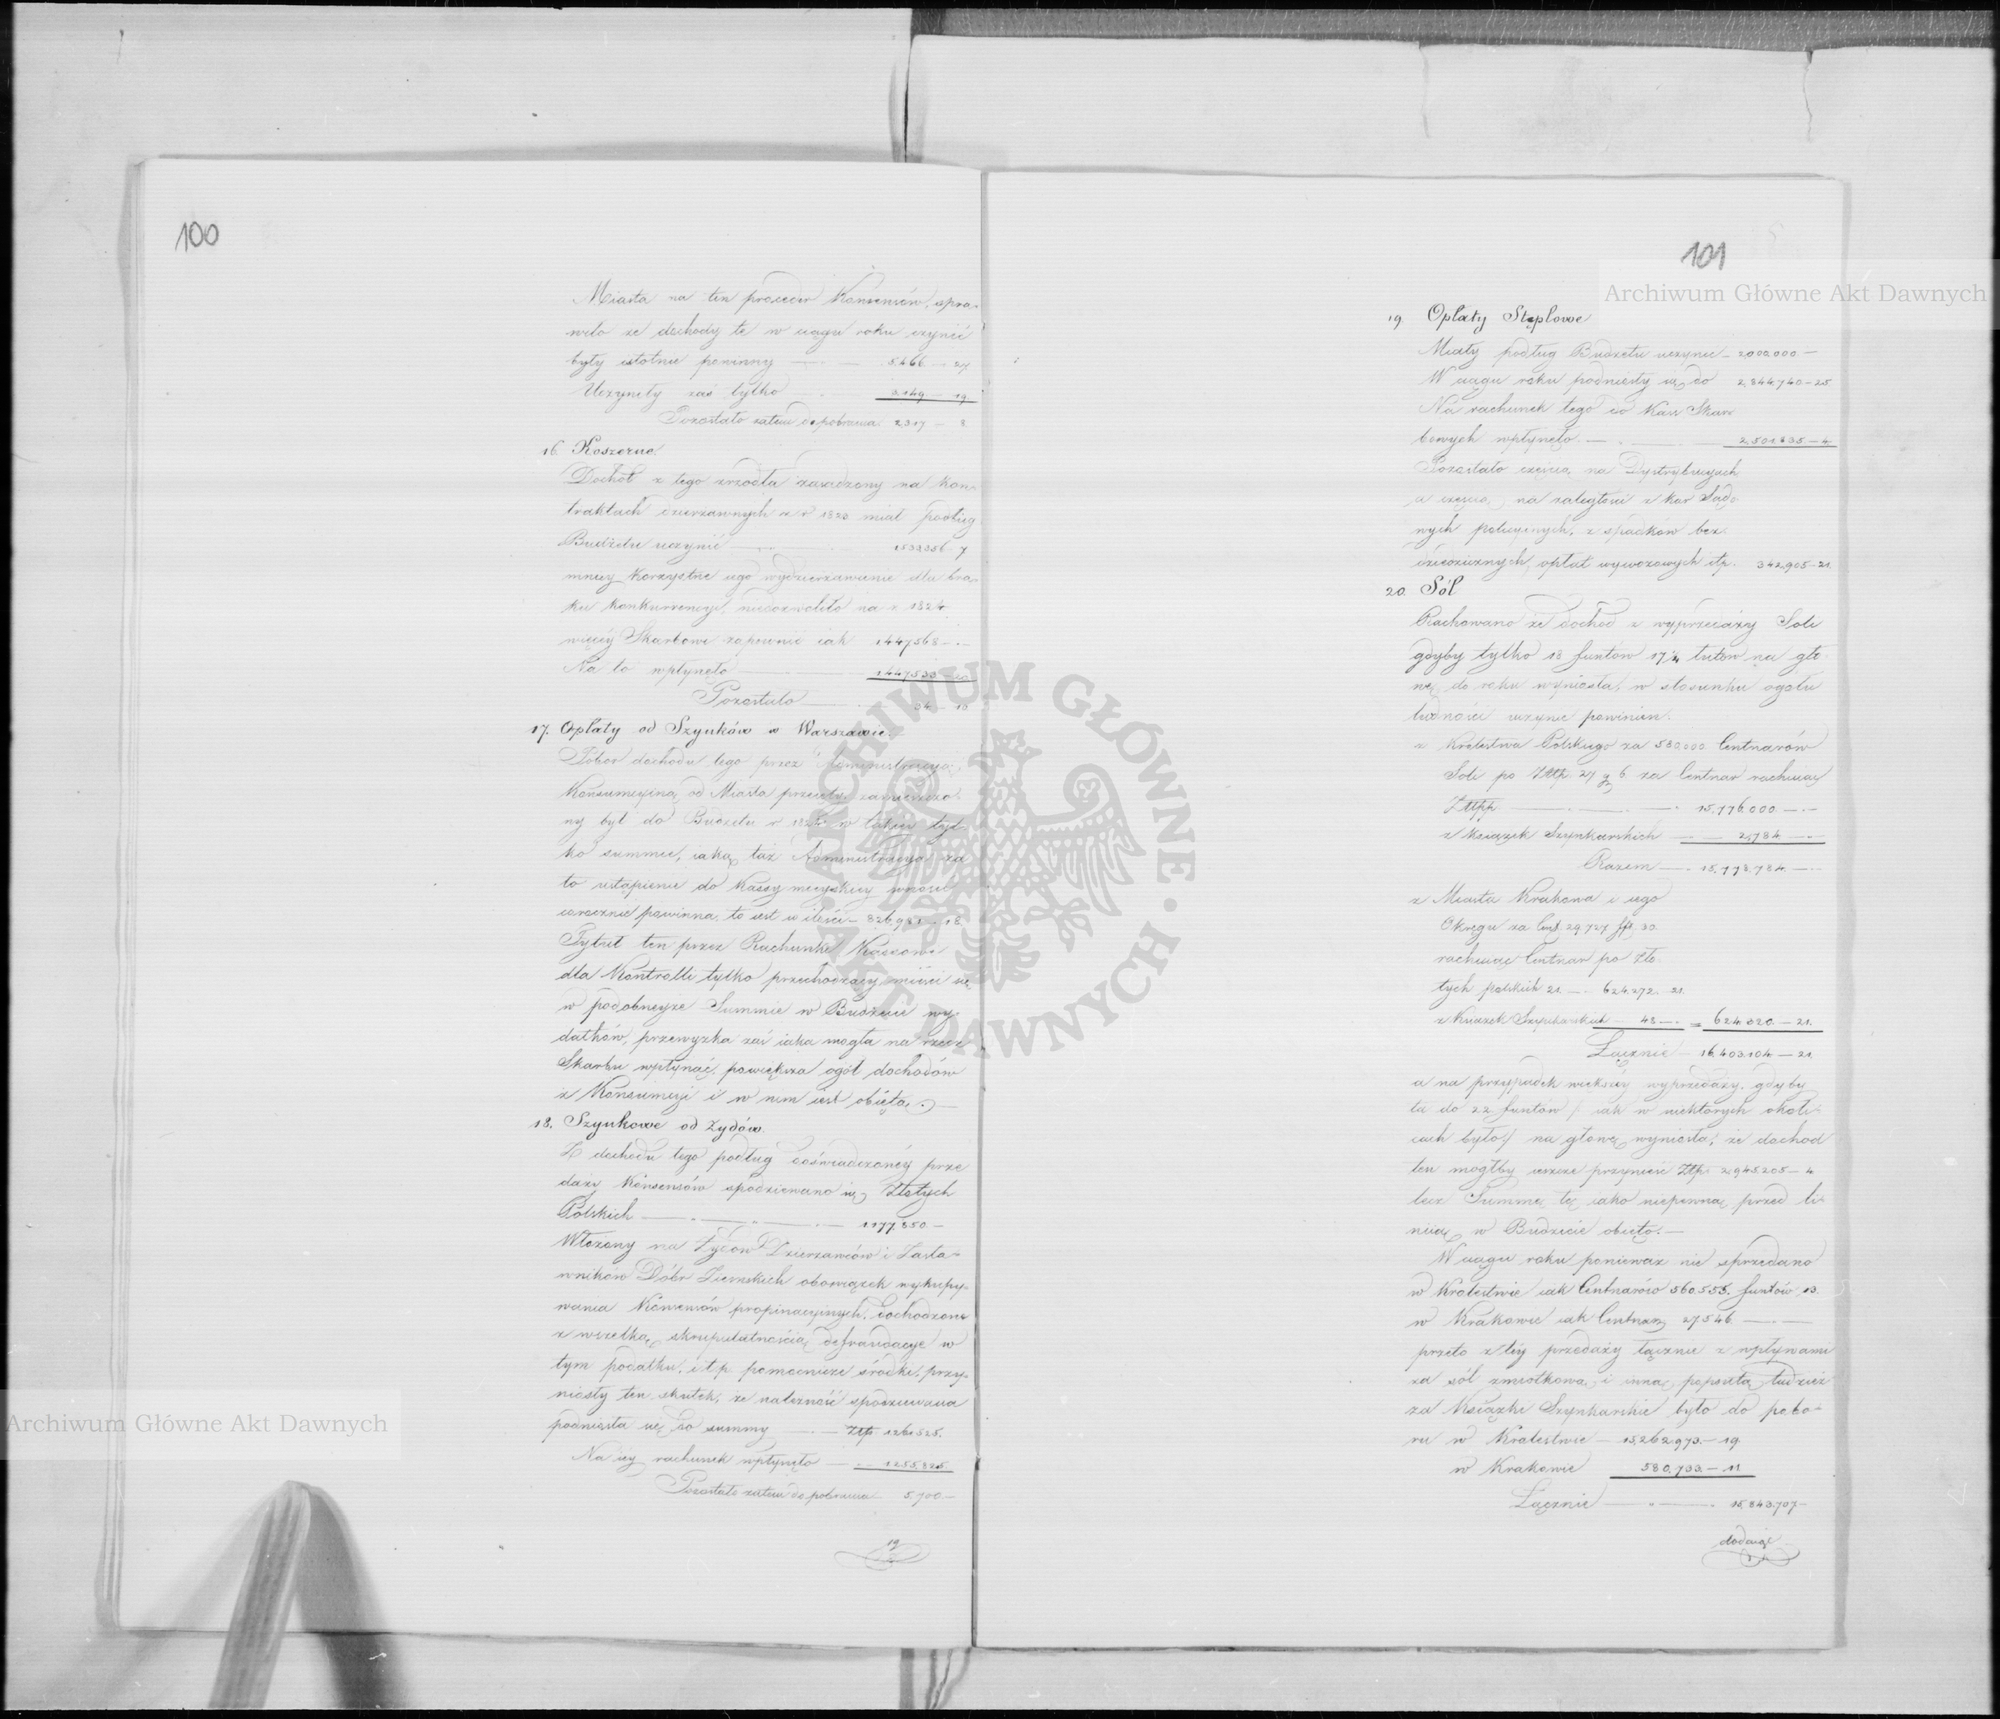 100
Miasta na ten proceder Konsensów, spra-
wiło że dochody te w ciągu roku czynić
były istotnie powinny — 5.466 — 27
Uczyniły zaś tylko — 3.149 — 19
Pozostało zatem do pobrania 2,317 — 8
16. Koszerne.
Dochód z tego źrzódła zasadzony na kon-
traktach dzierżawnych z r. 1823 miał podług
Budżetu uczynić — 1533356 - 7
mniey korzystne iego wydzierżawienie dla bra-
ku konkurrencyi, niedozwoliło na r. 1824
więcéy Skarbowi zapewnić iak 1447,568 —
Na to wpłynęło — 1447,533 — 20
Pozostało — 34 — 10
17. Opłaty od Szynków w Warszawie.
Pobór dochodu tego przez Administracyą
Konsumcyiną od Miasta przejęty, zamieszczo-
ny był do Budżetu r 1824 w takiey tyl-
ko summie, iaką taż Administracya za
to ustąpienie do Kassy mieyskiey wnosić
corocznie powinna, to iest w ilości — 826,981 - 18
Tytuł ten przez Rachunki Kassowe
dla Kontrolli tylko przechodzący, mieści się
w podobneyże Summie w Budżecie wy-
datków, przewyżka zaś iaka mogła na rzecz
Skarbu wpłynąć, powiększa ogół dochodów
z Konsumcyi i w nim iest obięta. —
18. Szynkowe od Żydów.
Z dochodu tego podług doświadczonéy prze-
daży Konsensów spodziewano się Złotych
Polskich — 1177,850 —
Włożony na Żydów Dzierżawców i Zasta-
wników Dóbr Ziemskich obowiązek wykupy-
wania Konsensów propinacyinych, dochodzone
z wszelką skrupulatnością defraudacye w
tym podatku, i t. p. pomocnicze śródki, przy-
niosły ten skutek, że należność spodziewana
podniosła się do summy — Złp. 1261525.
Na iéy rachunek wpłynęło — 1255,825.
Pozostało zatem do pobrania — 5,700 —
19
101
19. Opłaty Stęplowe
Miały podług Budżetu uczynić — 2,000,000 —
W ciągu roku podniosły się do 2,844,740 — 25
Na rachunek tego do Kass Skar-
bowych wpłynęło — 2,501,835 — 4
Pozostało częścią na Dystrybucyach
a częścią na zaległości z kar Sądo-
wych policyinych, z spadków bez-
dziedzicznych, opłat wywozowych itp. 342,905 — 21
20. Sól
Rachowano że dochód z wyprzedaży Soli
gdyby tylko 18 funtów 17 łutów na gło-
wę do roku wyniosła, w stosunku ogółu
ludności uczynić powinien.
z Królestwa Polskiego za 580.000 Centnarów
Soli po Złp. 27 g 6 za Centnar rachuiąc
Złpp — 15,776,000 —
z książek Szynkarskich — 2,784 —
Razem — 15,778,784 —
z Miasta Krakowa i iego
Okręgu za Cent. 29,727 ff. 30.
rachuiąc Centnar po Zło-
tych polskich 21. — 624,272 — 21.
z Książek Szynkarskich — 48 — = 624.320 — 21.
Łącznie — 16,403,104 — 21.
a na przypadek większéy wyprzedaży, gdyby
ta do 22 funtów / iak w niektórych okoli-
cach było / na głowę wyniosła, że dochód
ten mógłby ieszcze przynieść Złp. 2,945,205 — 4
lecz Summę tę iako niepewną przed li-
niią w Budżecie obięto. —
W ciągu roku ponieważ nie sprzedano
w Królestwie iak Centnarów 560,555. funtów 13.
w Krakowie iak Centnar. 27,546. —
przeto z téy przedaży łącznie z wpływami
za sól zmiotkową i inną popsutą, tudzież
za Książki Szynkarskie było do pobo-
ru w Królestwie — 15,262,973. — 19
w Krakowie 580,733. — 11
Łącznie — 15,843,707 —
dodaiąc
Archiwum Główne Akt Dawnych
Archiwum Główne Akt Dawnych
ARCHIWUM GŁÓWNE AKT DAWNYCH